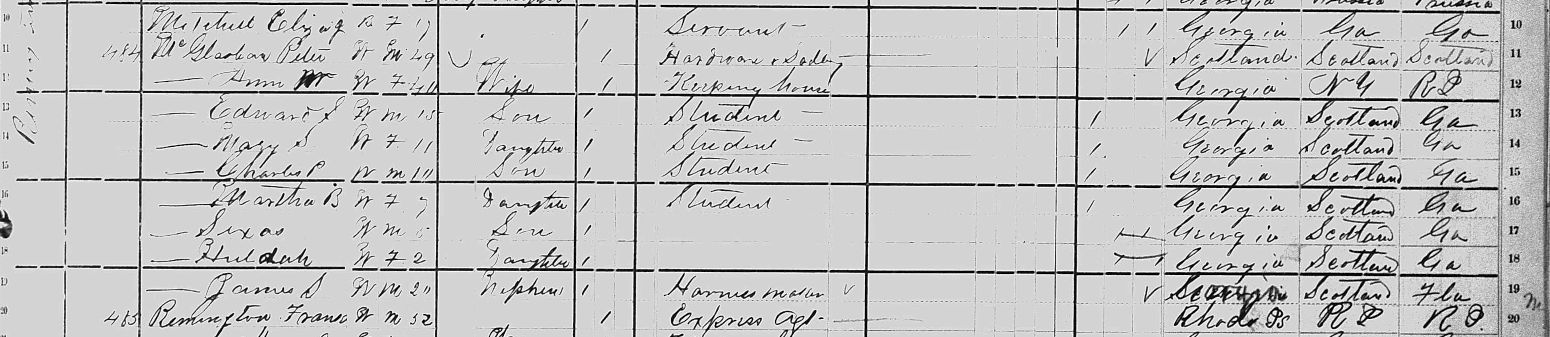 10 Mitchell Eliza B F 17 Servant 1 1 Georgia Ga Ga 10
11 484 McGlashan Peter W M 49 1 Hardware & Sadlery Scotland Scotland Scotland 11
— Ann M W F 40 Wife 1 Keeping house Georgia N Y R I 12
13 — Edward S W M 15 Son 1 Student 1 Georgia Scotland Ga 13
14 — Mary S W F 11 Daughter 1 Student 1 Georgia Scotland Ga 14
15 — Charles P W M 10 Son 1 Student 1 Georgia Scotland Ga 15
16 — Martha B W F 7 Daughter 1 Student 1 Georgia Scotland Ga 16
— Sixas W M 5 Son 1 Georgia Scotland Ga 17
18 — Huldah W F 2 Daughter 1 Georgia Scotland Ga 18
19 — James S W M 20 Nephew 1 Harness maker Scotland Fla 19
20 485 Remington W M 52 1 Express Agt. Rhode Is R I R I. 20